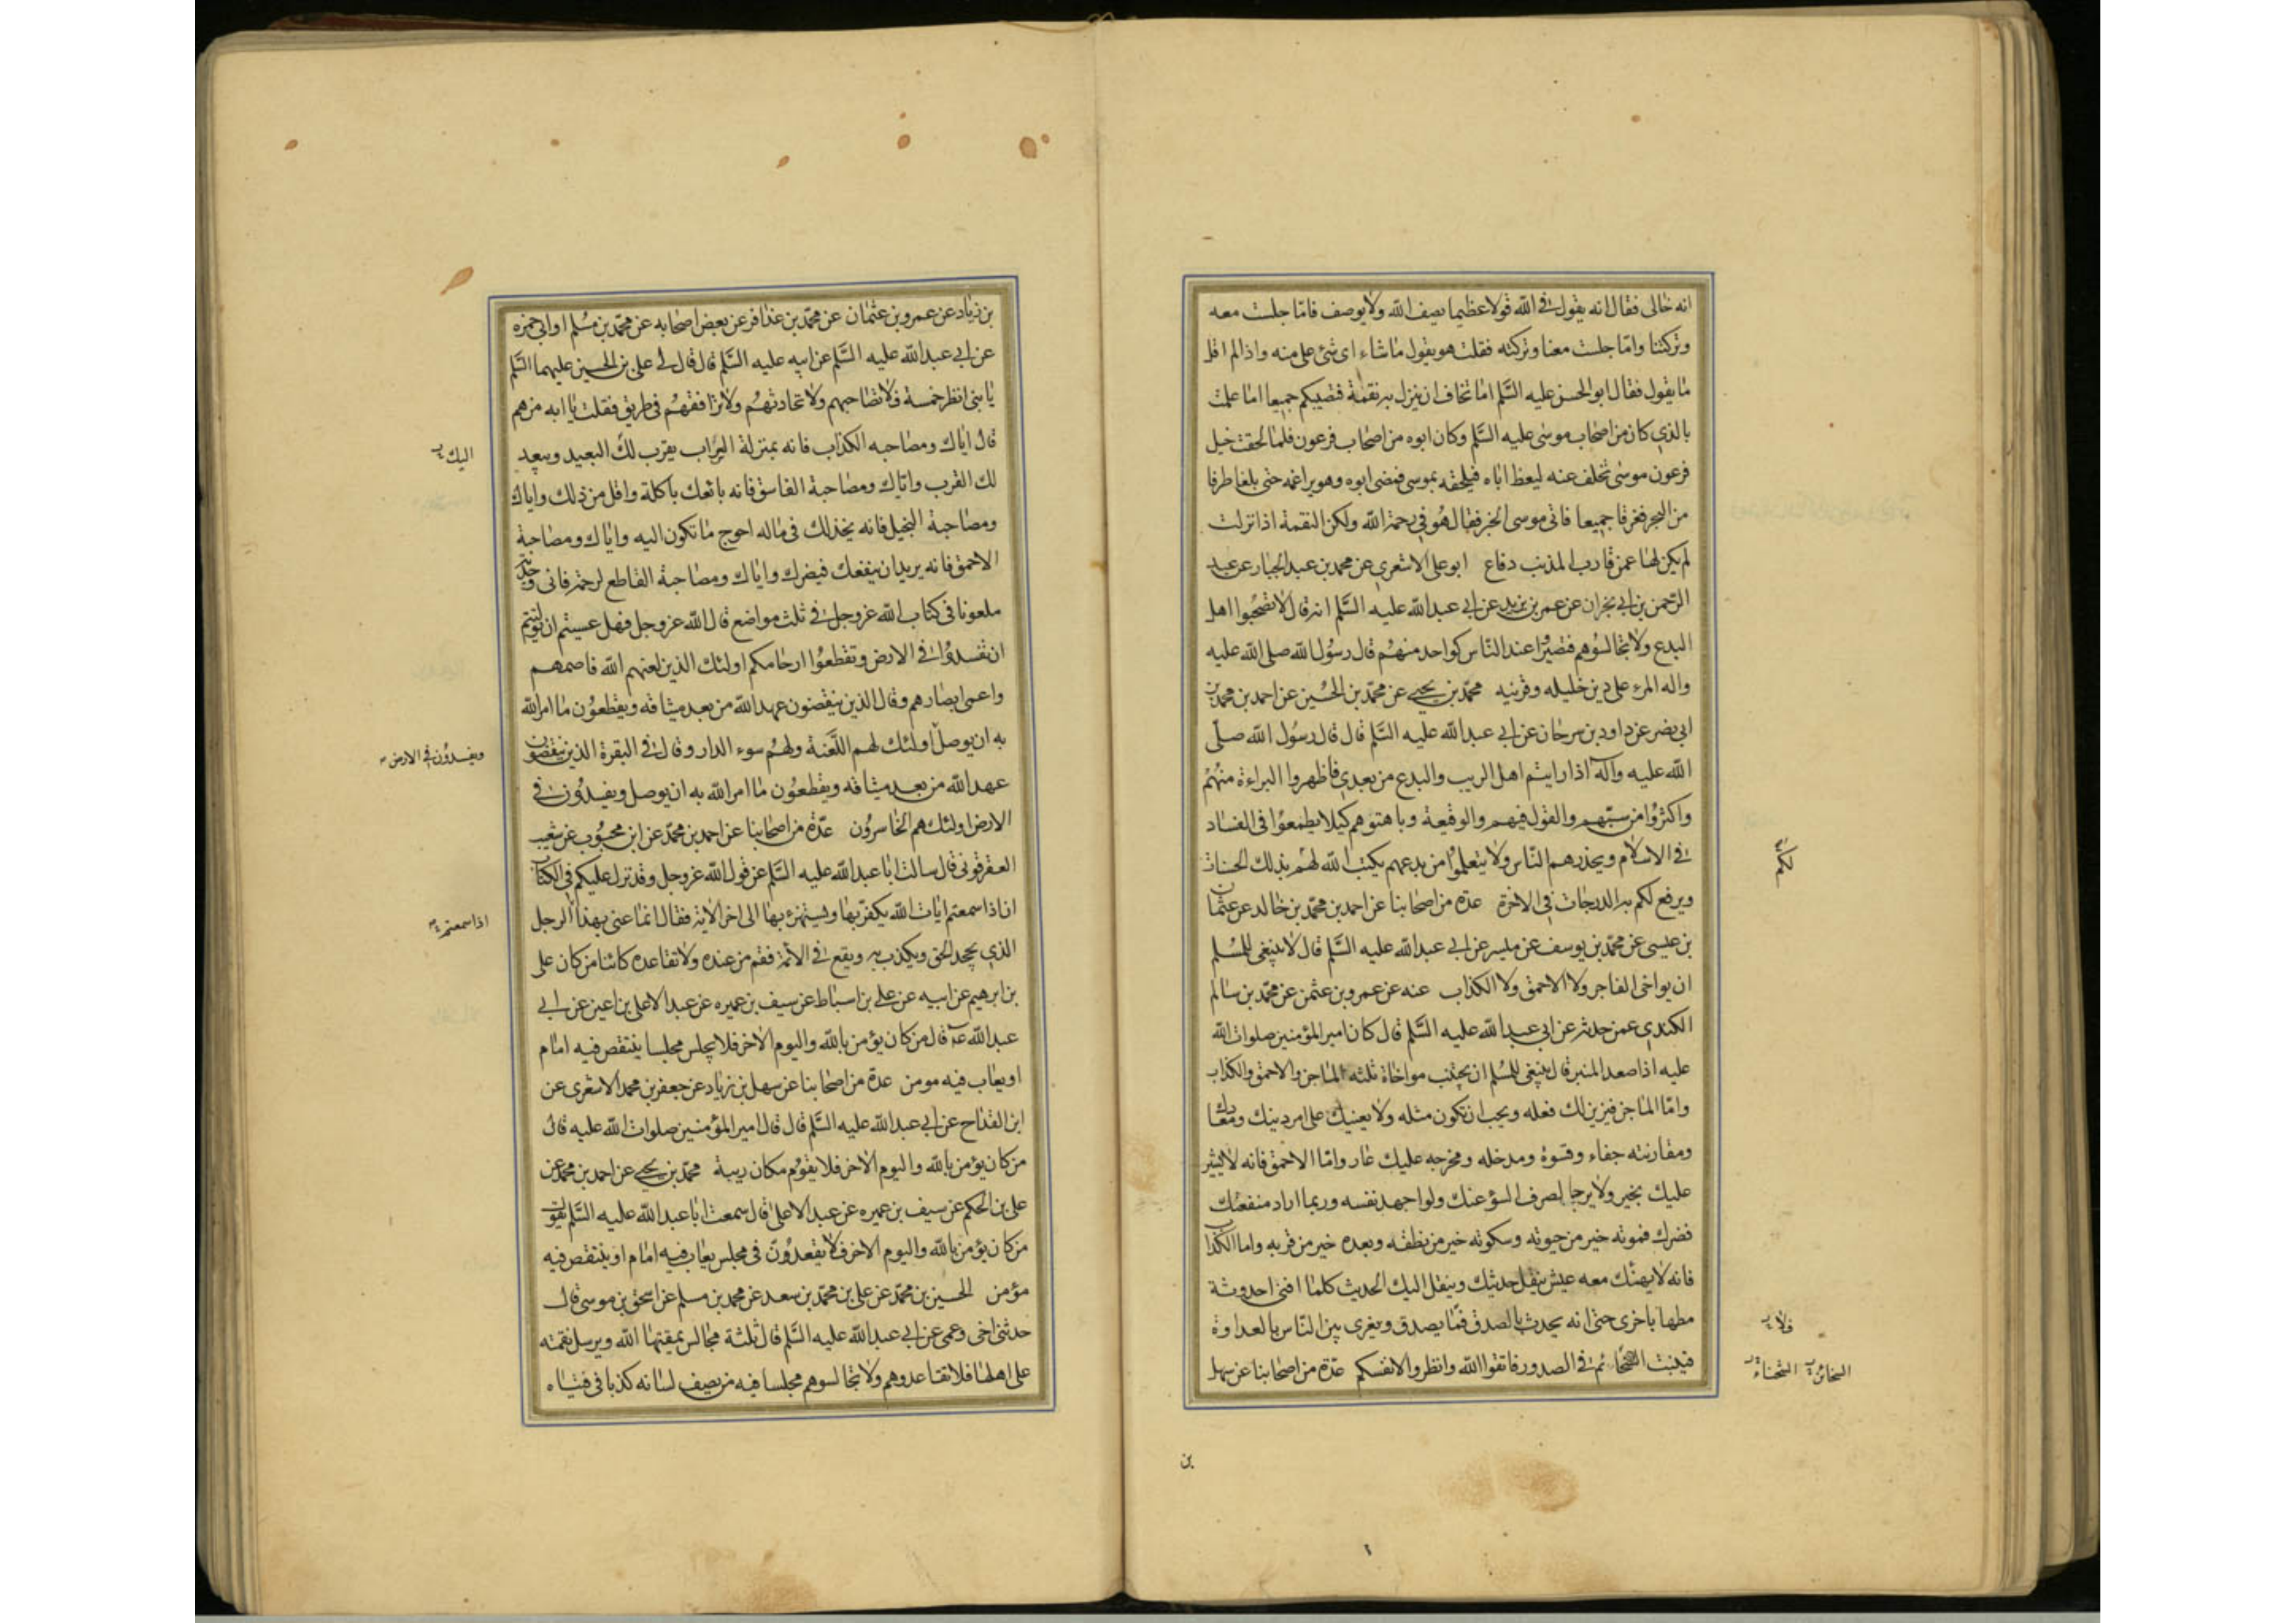 انه خالى فقال انه يقول فى الله قولا عظيما يصف الله ولا يوصف فامّا جلست معه
وتركتنا وامّا جلست معنا وتركته فقلت هو يقول ما شاء اى شئ على منه واذا لم اقل
ما يقول فقال ابو الحسن عليه السَّلم اما تخاف ان ينزل به نقمة فتصيبكم جميعا اما علمت
بالذي كان من اصحاب موسى عليه السَّلم وكان ابوه من اصحاب فرعون فلما لحقت خيل
فرعون موسى تخلف عنه ليعظ اباه فيلحقه بموسى فمضى ابوه وهو يراغمه حتى بلغا طرفا
من البحر فغرقا جميعا فاتى موسى الخبر فقال هُو في رحمة الله ولكن النقمة اذا نزلت
لم يكن لها عمن قارب المذنب دفاع ابو على الاشعري عن محمد بن عبد الجبار عن عبد
الرّحمن بن ابي نجران عن عمر بن يزيد عن ابي عبد الله عليه السَّلم انه قال لا تصحبُوا اهل
البدع ولا تجالسُوهم فتصيرُوا عند النّاس كواحد منهُم قال رسُول الله صلى الله عليه
واله المرء على دين خليله وقرينه محمّد بن يحيى عن محمّد بن الحُسين عن احمد بن محمد بن
ابي نصر عن داود بن سرحان عن ابي عبد الله عليه السَّلم قال قال رسُول الله صلّى
الله عليه وآله اذا رايتم اهل الريب والبدع من بعدي فاظهروا البراءة منهُمْ
واكثرُوا من سبّهم والقول فيهم والوقيعة وباهتوهم كيلا يطمعُوا فى الفساد
فى الاسلام ويحذرهم النّاس ولا يتعلمُوا من بدعهم يكتب الله لهُم بذلك الحسنات
لكم
ويرفع لكم به الدرجات في الاخرة عدة من اصحابنا عن احمد بن محمّد بن خالد عن عثمان
بن عيسى عن محمّد بن يوسف عن ميسر عن ابي عبد الله عليه السَّلم قال لا ينبغى للمُسلم
ان يواخى الفاجر ولا الاحمق ولا الكذاب عنه عن عمرو بن عثمن عن محمّد بن سالم
الكندي عمن حدثه عن ابى عبد الله عليه السَّلم قال كان امير المؤمنين صلوات الله
عليه اذا صعد المنبر قال ينبغى للمُسلم ان يجتنب مواخاة ثلثه الماجن والاحمق والكذاب
وامّا الماجن فيزين لك فعله ويحب ان تكون مثله ولا يعينك على امر دينك ومعادك
ومقارنته جفاء وقسوة ومدخله ومخرجه عليك عار وامّا الاحمق فانه لا يشير
عليك بخير ولا يرجا لصرف السؤ عنك ولو اجهد نفسه وربما اراد منفعتك
فضرك فموته خير من حيوته وسكوته خير من نطقه وبعده خير من قربه واما الكذاب
فانه لا يهنئك معه عيش ينقل حديثك وينقل اليك الحديث كلما افنى احدوثة
مطها باخرى حتى انه يحدث بالصدق فما يصدق ويغرى بين النّاس بالعداوة
فلا
فينبت السخائم فى الصدور فاتقوا الله وانظروا لانفسكم عدّة من اصحابنا عن سهل
السخائم الشحناء
بن
بن زياد عن عمرو بن عثمان عن محمّد بن عذافر عن بعض اصحابه عن محمّد بن مسُلم او ابي حمزه
عن ابي عبد الله عليه السَّلم عن ابيه عليه السَّلم قال قال لي علي بن الحسين عليهما السَّلم
يا بنى انظر خمسة فلا تصاحبهم ولا تحادثهُم ولا ترافقهُم فى طريق فقلت يا ابه من هم
قال اياك ومصاحبه الكذاب فانه بمنزلة السّراب يقرب لك البعيد ويبعد
اليك
لك القرب واياك ومصاحبة الفاسق فانه بائعك باكلة واقل من ذلك واياك
ومصاحبة البخيل فانه يخذلك فى ماله احوج ما تكون اليه واياك ومصاحبة
الاحمق فانه يريد ان ينفعك فيضرك واياك ومصاحبة القاطع لرحمه فانى وجدته
ملعونا فى كتاب الله عز وجل فى ثلث مواضع قال الله عز وجل فهل عسيتم ان توليتم
ان تفسدُوا فى الارض وتقطعُوا ارحامكم اولئك الذين لعنهم الله فاصمهم
واعمى ابصارهم وقال الذين ينقضون عهد الله من بعد ميثاقه ويقطعُون ما امر الله
به ان يوصل اولئك لهم اللّعنة ولهُم سوء الدار وقال فى البقرة الذين ينقضون
ويفسدُون فى الارض
عهد الله من بعد ميثاقه ويقطعُون ما امر الله به ان يوصل ويفسدُون فى
الارض اولئك هم الخاسرُون عدّة من اصحابنا عن احمد بن محمّد عن ابن محبُوب عن شعيب
العقرقوفى قال سالت ابا عبد الله عليه السَّلم عن قول الله عز وجل وقد نزل عليكم فى الكتاب
ان اذا سمعتم ايات الله يكفر بها ويستهزء بها الى اخر الاية فقال انما عنى بهذا الرجل
اذا سمعتم
الذي يجحد الحق ويكذب به ويقع فى الائمة فقم من عنده ولا تقاعده كائنا من كان على
بن ابرهيم عن ابيه عن علي بن اسباط عن سيف بن عميره عن عبد الاعلى بن اعين عن ابي
عبد الله عه قال من كان يؤمن بالله واليوم الاخر فلا يجلس مجلسا ينتقص فيه امام
او يعاب فيه مومن عدة من اصحابنا عن سهل بن زياد عن جعفر بن محمد الاشعرى عن
ابن القداح عن ابي عبد الله عليه السَّلم قال قال امير المؤمنين صلوات الله عليه قال
من كان يؤمن بالله واليوم الاخر فلا يقوُم مكان ريبة محمّد بن يحيى عن احمد بن محمد عن
على بن الحكم عن سيف بن عميره عن عبد الاعلى قال سمعت ابا عبد الله عليه السَّلم يقول
من كان يؤمن بالله واليوم الاخر فلا يقعدُون فى مجلس يعاب فيه امام او ينتقص فيه
مؤمن الحسين بن محمّد عن على بن محمّد بن سعد عن محمد بن مسلم عن اسحق بن موسى قال
حدثنى اخى وعمى عن ابي عبد الله عليه السَّلم قال ثلثة مجالس يمقتها الله ويرسل نقمته
على اهلها فلا تقاعدوهم ولا تجالسوهم مجلسا فيه من يصف لسانه كذبا فى فتياه